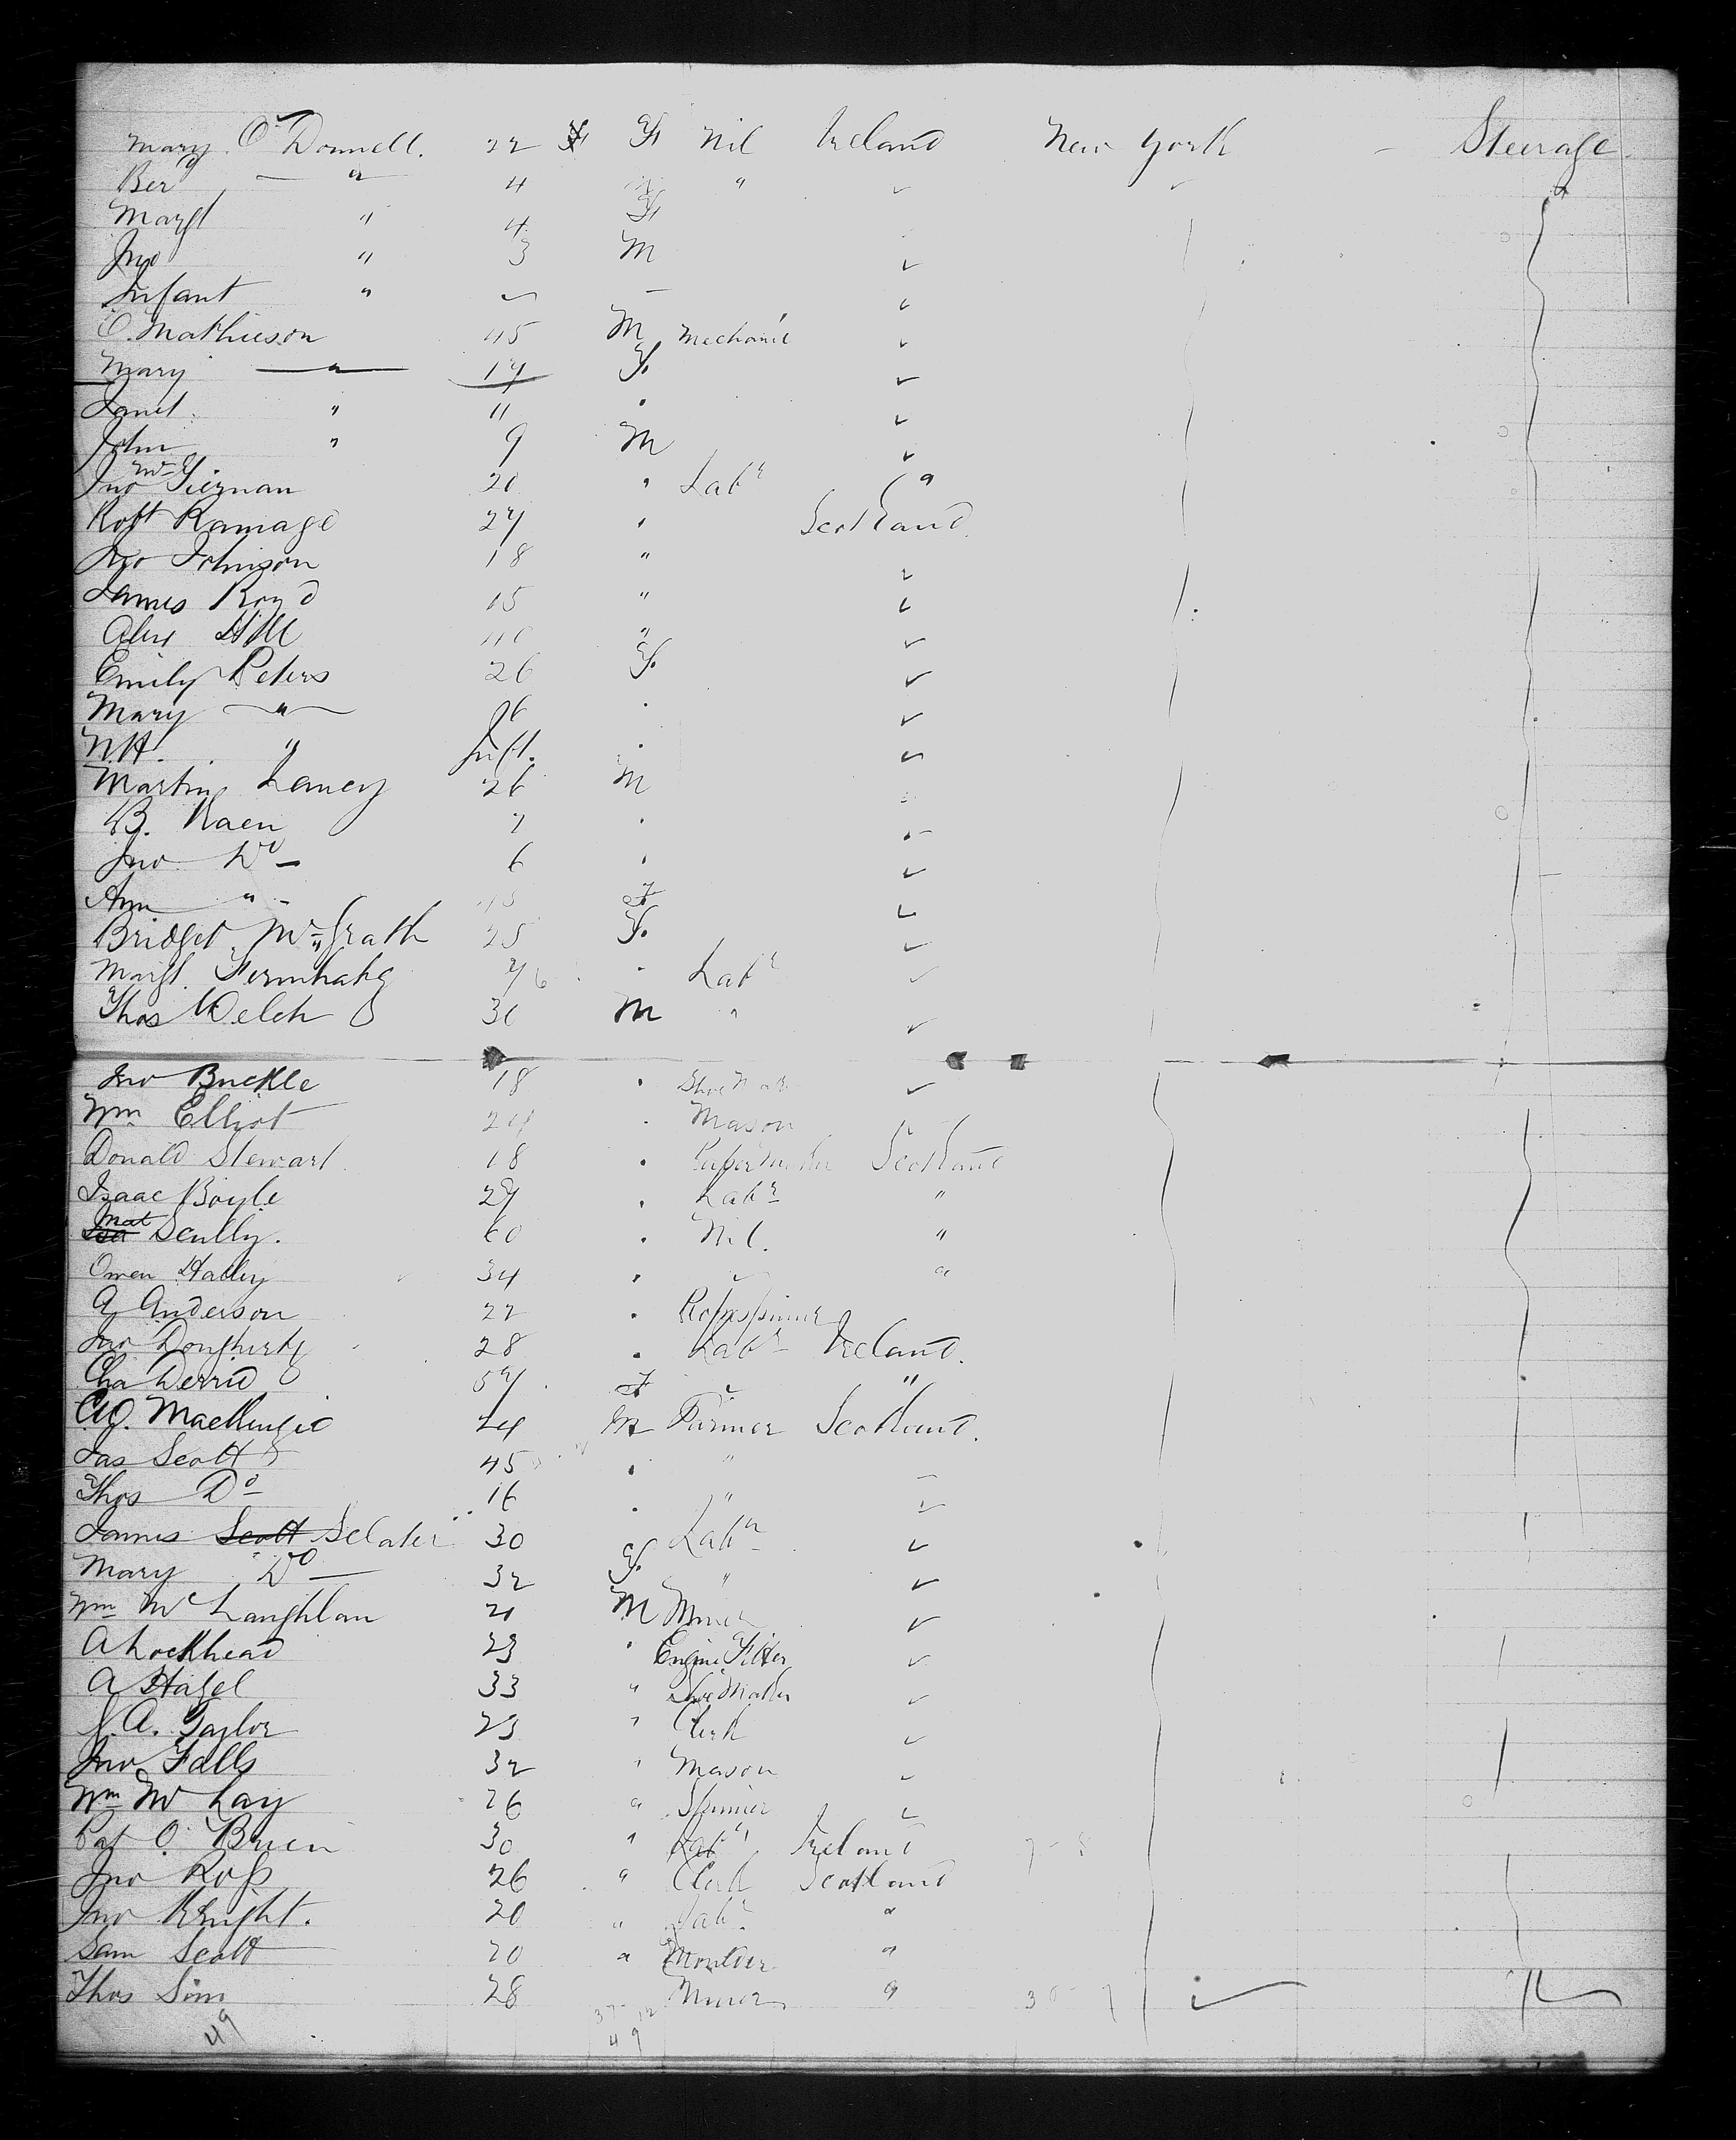 Mary O'Donnell. 22 F Nil Ireland New York - Steerage
Ber " 4 "
Margt " 4 F
Jno " 3 M
Infant "
O. Mathieson 45 M Mechanic
Mary " 17 F.
Janet " 11
John " 9 M
Jno McTiernan 20 " Labr "
Robt Ramage 27 " Scotland
Jno Johnson 18 "
James Boyd 15 "
Alex Hill 40 "
Emily Peters 26 F.
Mary "
N.H. " Inft.
Martin Laney 26 M
B. Kaen 7
Jno Do 6
Ann " F
Bridget McGrath 25 F.
Margt. Labr
Thos Welch 30 M "
Jno Buckle 18
Wm Elliot 24 Mason
Donald Stewart 18 Paper Maker Scotland
Isaac Boyle 29 Labr "
Mat Scully. 60 Nil. "
Owen Hadley 34 "
A Anderson 22 Ropespinner
Jno Dougherty 28 Labr Ireland.
Cha Derrid 57 F "
MacKenzie 24 M Farmer Scotland.
Jas Scott 45 "
Thos Do 16 "
James Scott Sclater 30 Labr
Mary Do 32 F. "
Wm McLaughlan 21 M Miner
A Lockhead 23 " Engine Fitter
A Hagel 33 " Shoe Maker
J. A. Taylor 23 " Clerk
Jno Falls 32 " Mason
Wm McLay 26 " Spinner
Pat O'Brien 30 " Labr Ireland
Jno Ross 26 " Clerk Scotland
Jno Knight. 20 " Labr "
Sam Scott 20 " Moulder "
Thos Sim 28 Miner "
49 37-12
49